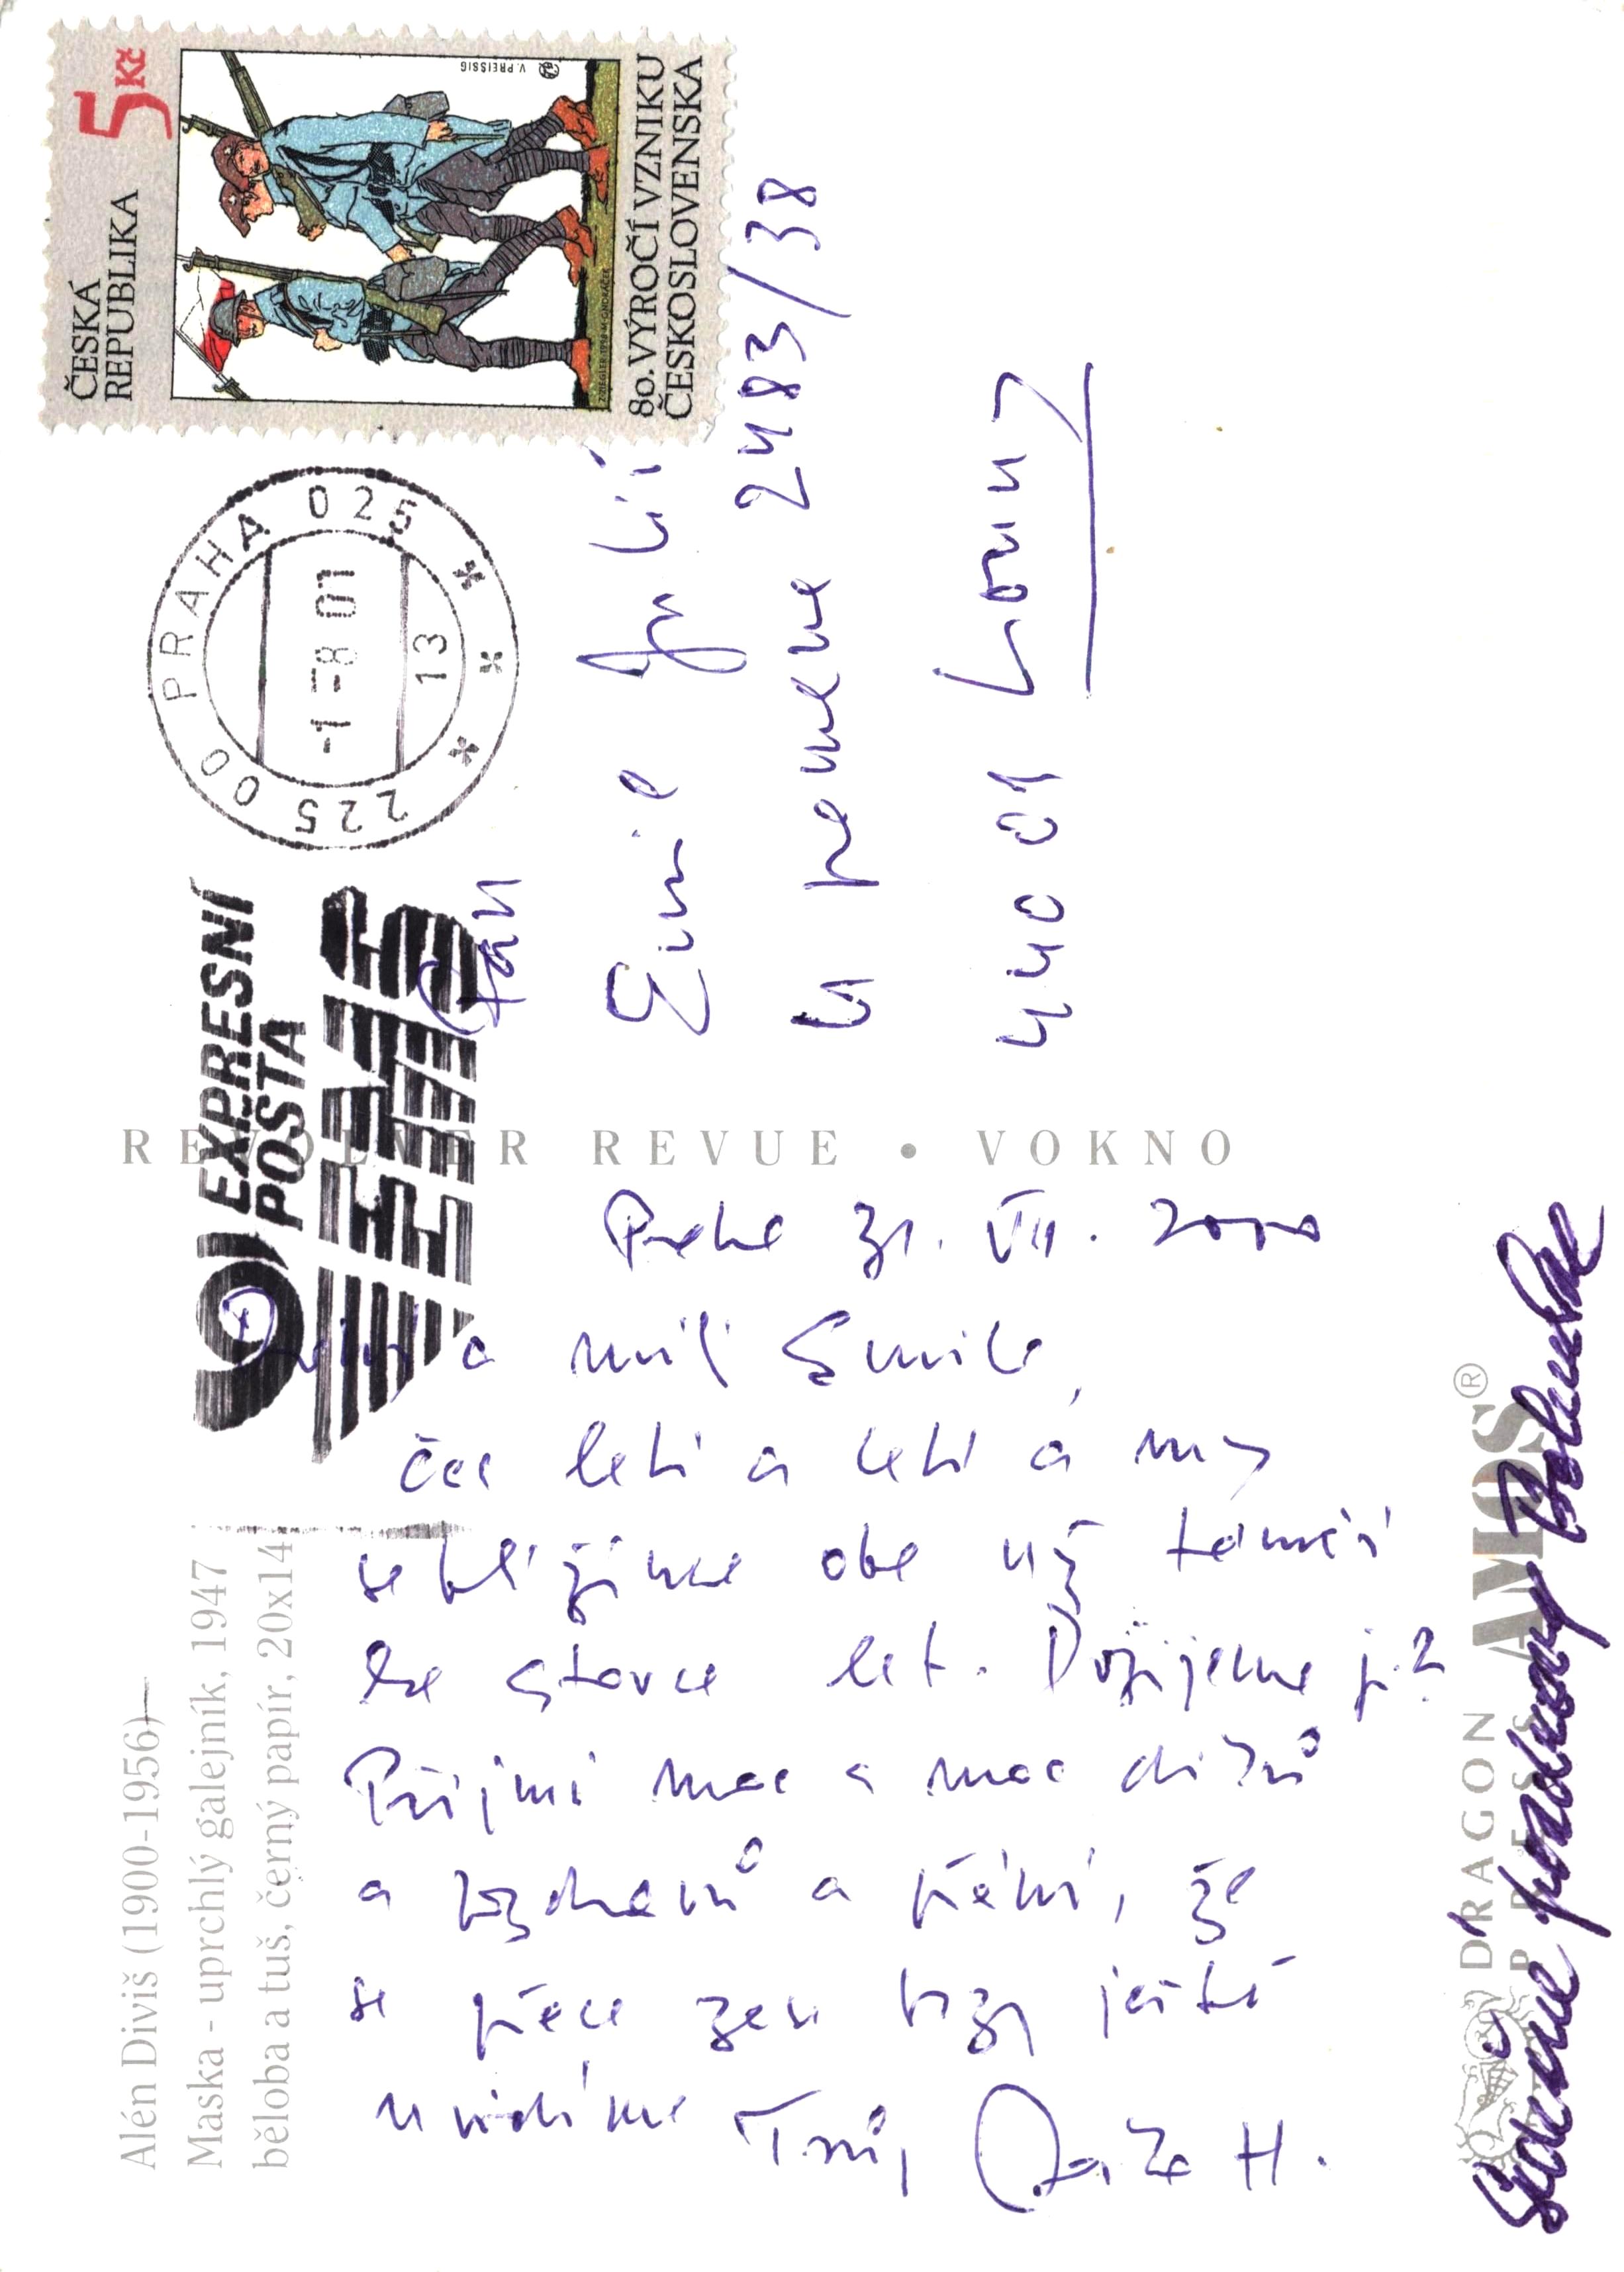 Alén Diviš (1900-1956)
Maska - uprchlý galejník, 1947
běloba a tuš, černý papír, 20x14
Praha 31. VII. 2000
Drahý a milý Emile,
čas letí a letí a my
se blížíme oba už téměř
ke stovce let. Dožijeme ji?
Přijmi moc a moc díků
a pozdravů a přání, že
se přece zase brzy ještě
uvidíme Tvůj H.
Srdečně pozdravuji Bohunka
DRAGON
PRESS
AMOS®
REVOLVER REVUE • VOKNO
EXPRESNÍ
POŠTA
EMS
225 00 PRAHA 025
-1.-8 01
13
ČESKÁ
REPUBLIKA
5 Kč
V. PREISSIG
80. VÝROČÍ VZNIKU
ČESKOSLOVENSKA
Pan
Emil Juliš
U pramene 2483/38
440 01 Louny